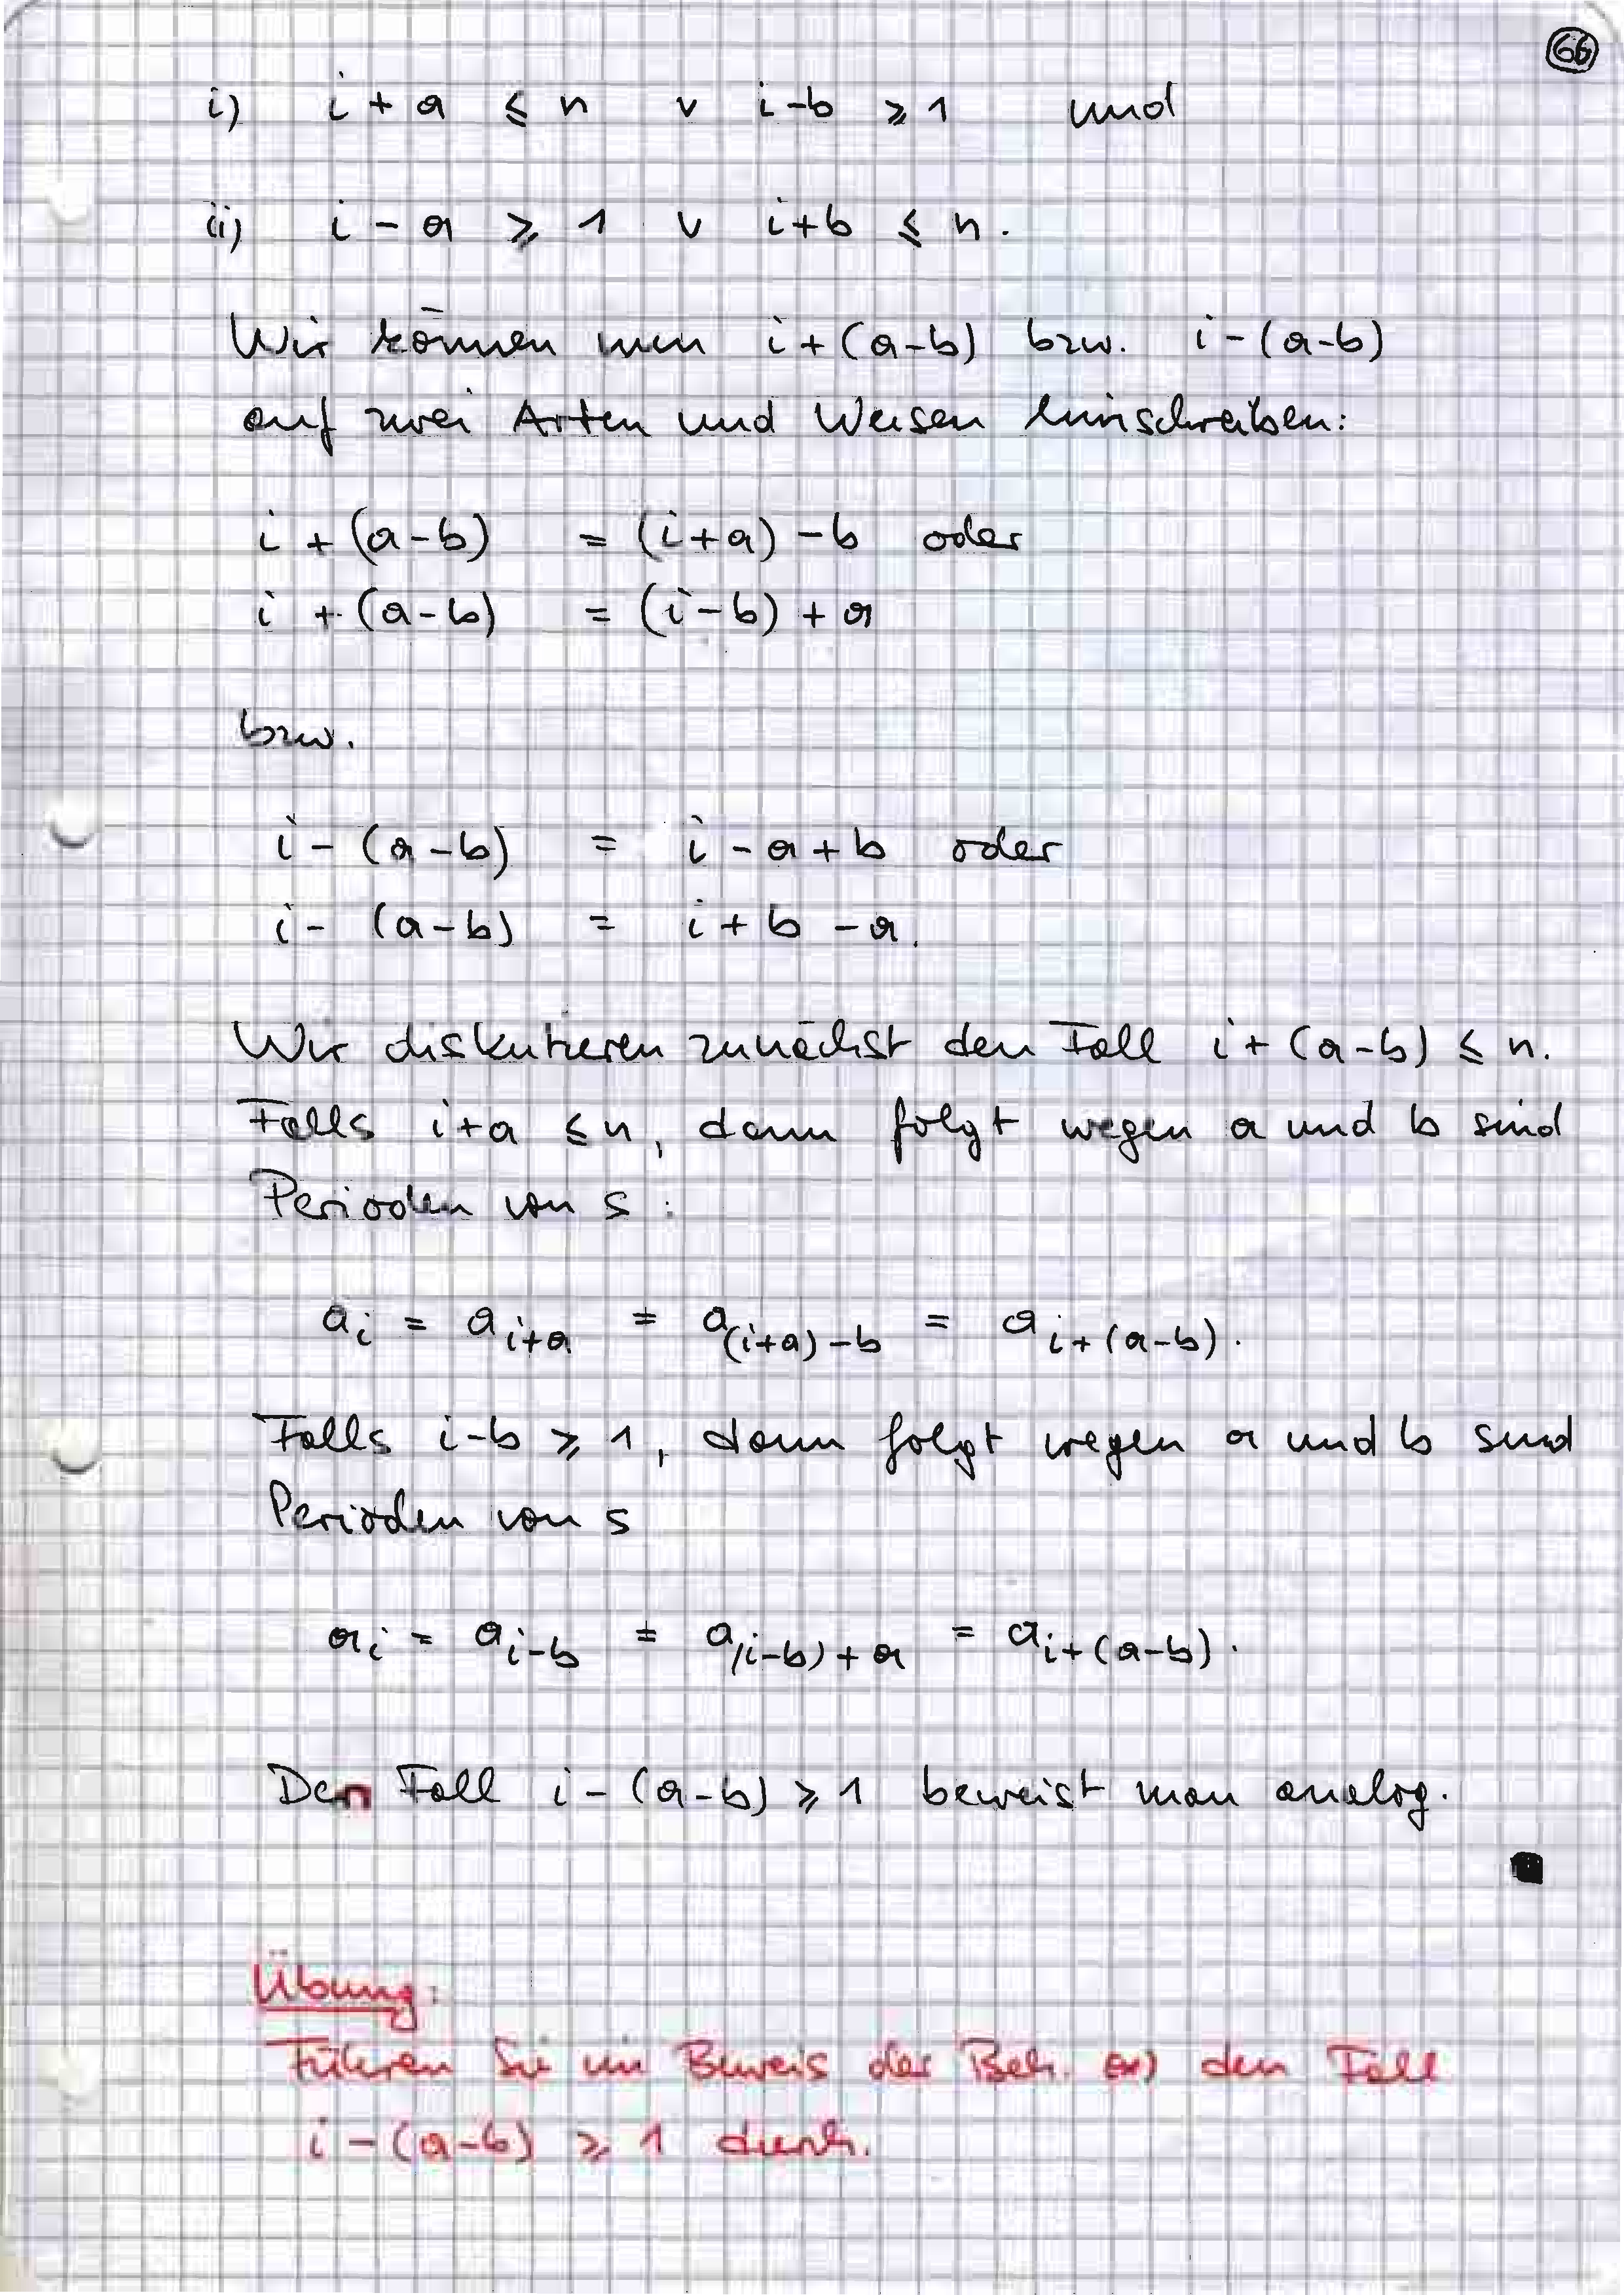 66
i) i + a ≤ n ∨ i - b ≥ 1 und
ii) i - a ≥ 1 ∨ i + b ≤ n.
Wir können nun i + (a - b) bzw. i - (a - b)
auf zwei Arten und Weisen hinschreiben:
i + (a - b) = (i + a) - b oder
i + (a - b) = (i - b) + a
bzw.
i - (a - b) = i - a + b oder
i - (a - b) = i + b - a.
Wir diskutieren zunächst den Fall i + (a - b) ≤ n.
Falls i + a ≤ n, dann folgt wegen a und b sind
Perioden von s:
a_i = a_{i+a} = a_{(i+a)-b} = a_{i+(a-b)}.
Falls i - b ≥ 1, dann folgt wegen a und b sind
Perioden von s
a_i = a_{i-b} = a_{(i-b)+a} = a_{i+(a-b)}.
Den Fall i - (a - b) ≥ 1 beweist man analog.
Übung:
Führen Sie im Beweis der Beh. a) den Fall
i - (a - b) ≥ 1 durch.